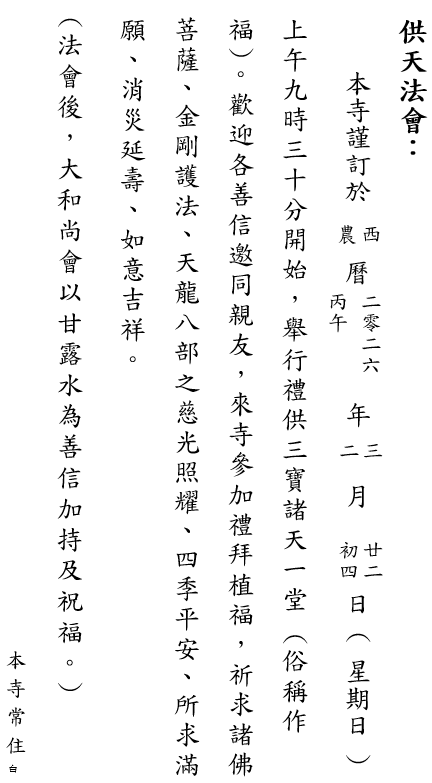 供天法會：
本寺謹訂於西農曆二零二六丙午年三二月廿二初四日（星期日）
上午九時三十分開始，舉行禮供三寶諸天一堂（俗稱作
福）。歡迎各善信邀同親友，來寺參加禮拜植福，祈求諸佛
菩薩、金剛護法、天龍八部之慈光照耀、四季平安、所求滿
願、消災延壽、如意吉祥。
（法會後，大和尚會以甘露水為善信加持及祝福。）
本寺常住白